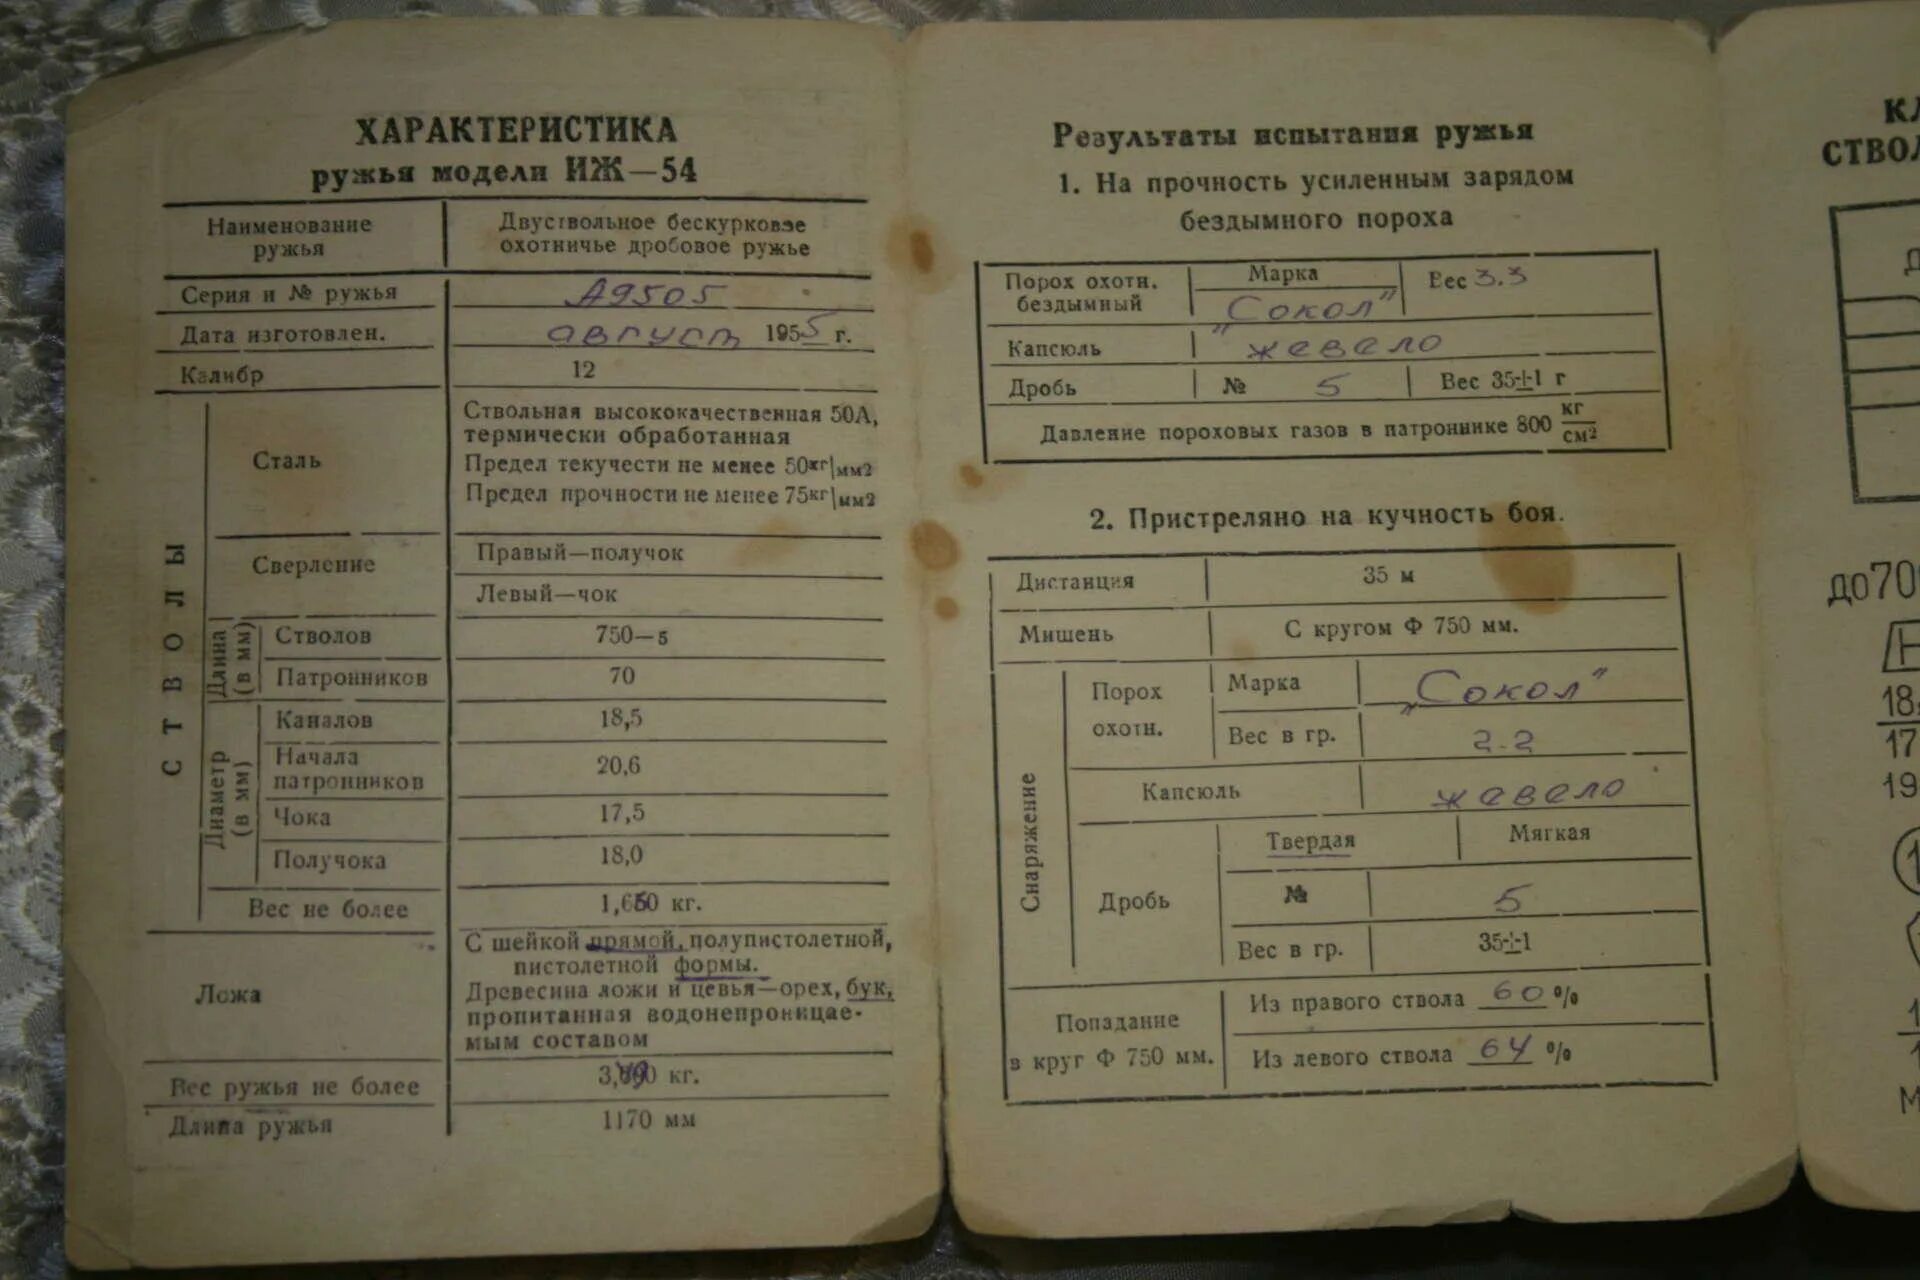 ХАРАКТЕРИСТИКА
ружья модели ИЖ—54
Наименование ружья
Двуствольное бескурковое
охотничье дробовое ружье
Серия и № ружья А9505
Дата изготовлен. август 1955 г.
Калибр 12
СТВОЛЫ
Сталь
Ствольная высококачественная 50А,
термически обработанная
Предел текучести не менее 50кг|мм2
Предел прочности не менее 75кг|мм2
Сверление
Правый—получок
Левый—чок
Длина (в мм)
Стволов 750—5
Патронников 70
Диаметр (в мм)
Каналов 18,5
Начала патронников 20,6
Чока 17,5
Получока 18,0
Вес не более кг.
Ложа
С шейкой прямой, полупистолетной,
пистолетной формы.
Древесина ложи и цевья—орех, бук,
пропитанная водонепроницае-
мым составом
Вес ружья не более кг.
Длина ружья 1170 мм
Результаты испытания ружья
1. На прочность усиленным зарядом
бездымного пороха
Порох охотн. бездымный
Марка
„Сокол"
Вес 3.3
Капсюль жевело
Дробь № 5 Вес 35±1 г
Давление пороховых газов в патроннике 800 кг/см2
2. Пристреляно на кучность боя.
Дистанция 35 м
Мишень С кругом Ф 750 мм.
Снаряжение
Порох охотн.
Марка „Сокол"
Вес в гр. 2.2
Капсюль жевело
Дробь
Твердая Мягкая
№ 5
Вес в гр. 35±1
Попадание
в круг Ф 750 мм.
Из правого ствола 60 %
Из левого ствола 64 %
КЛ
СТВОЛ
Д
до 70
18,
17
19
1
М